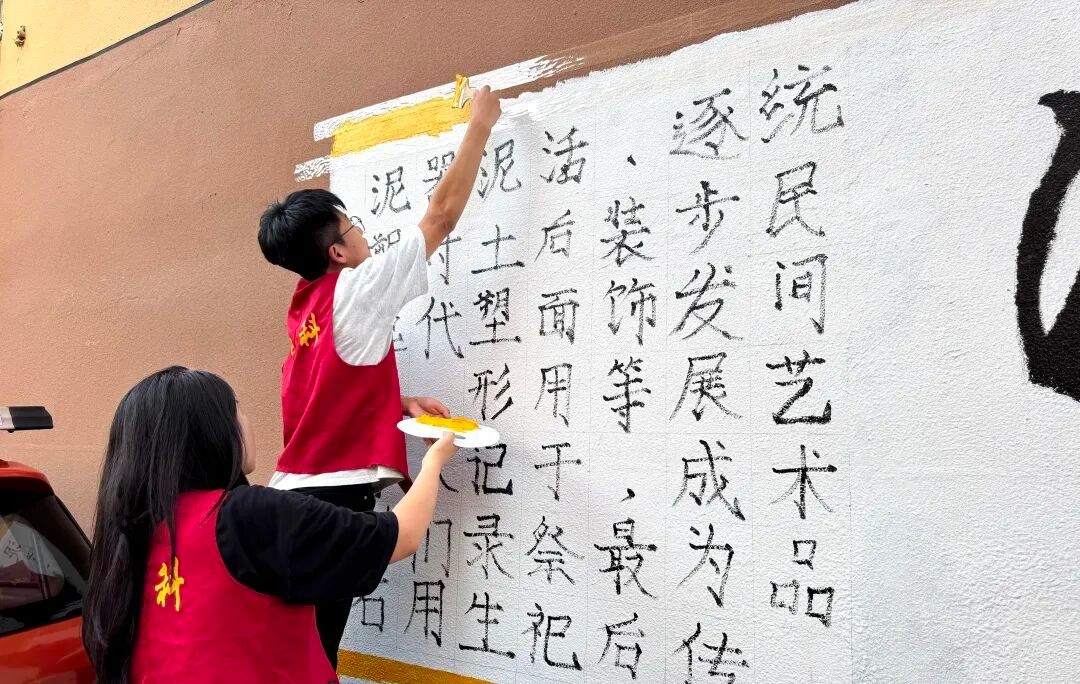 泥塑
石
器时代
们用
泥土塑形记录生
活后面用于祭祀
、装饰等，最后
逐步发展成为传
统民间艺术品
科
科